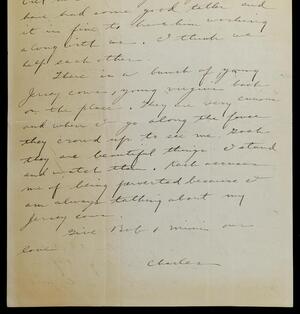 have had some good talks and
it is fine to have him working
along with me. I think we
help each other.
There is a bunch of young
Jersey cows, young virgins both
on the place. They are very curious
and when I go along the fence
they crowd up to see me. Gosh
they are beautiful things. I stand
and watch them. accuses
me of being perverted because I
am always talking about my
Jersey cows.
Give Bob & Mimi our
love.
Charles